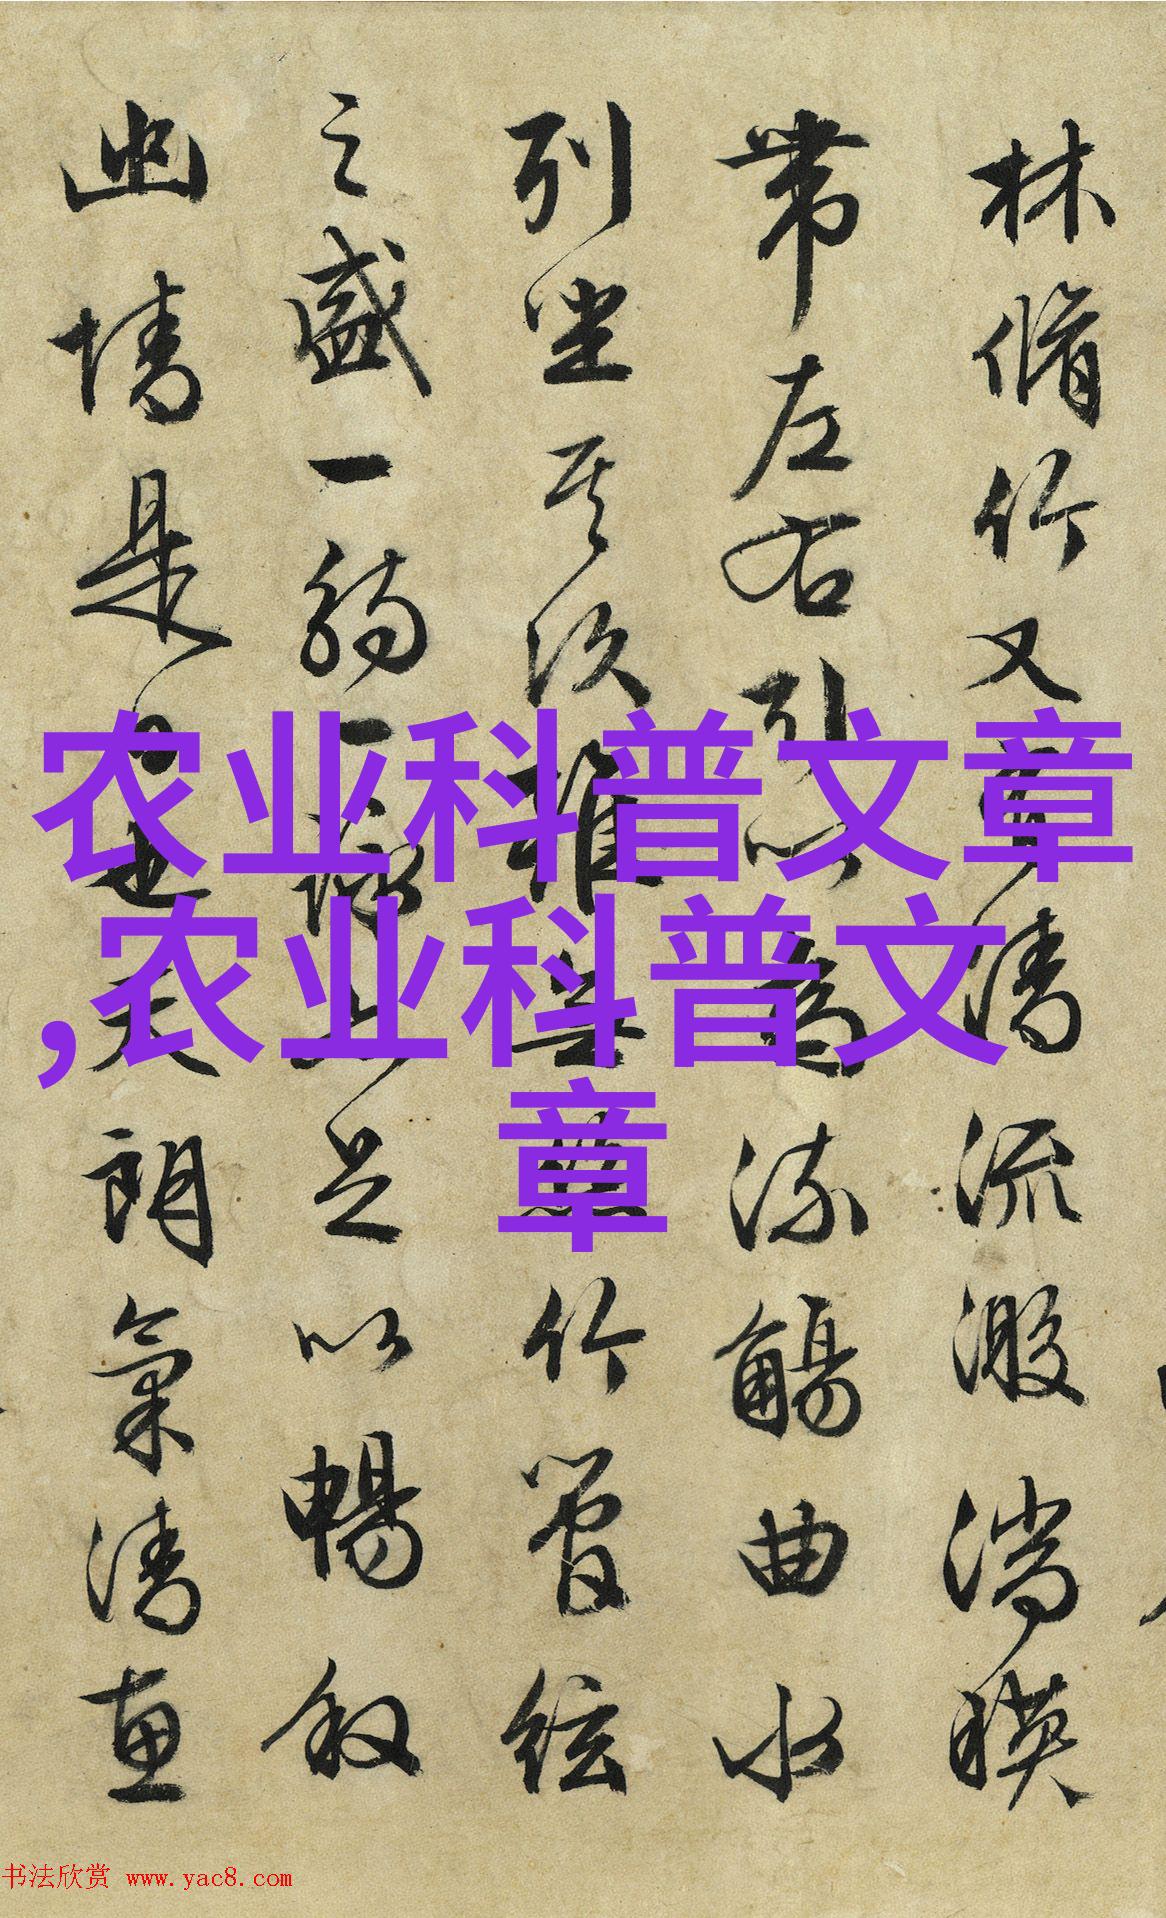 林脩竹又有清流激湍暎
帶左右引以為流觴曲水
列坐其次雖無絲竹管絃
之盛一觴一詠亦足以暢敘
幽情是日也天朗氣清惠
农业科普文章
,农业科普文
章
书法欣赏 www.yac8.com